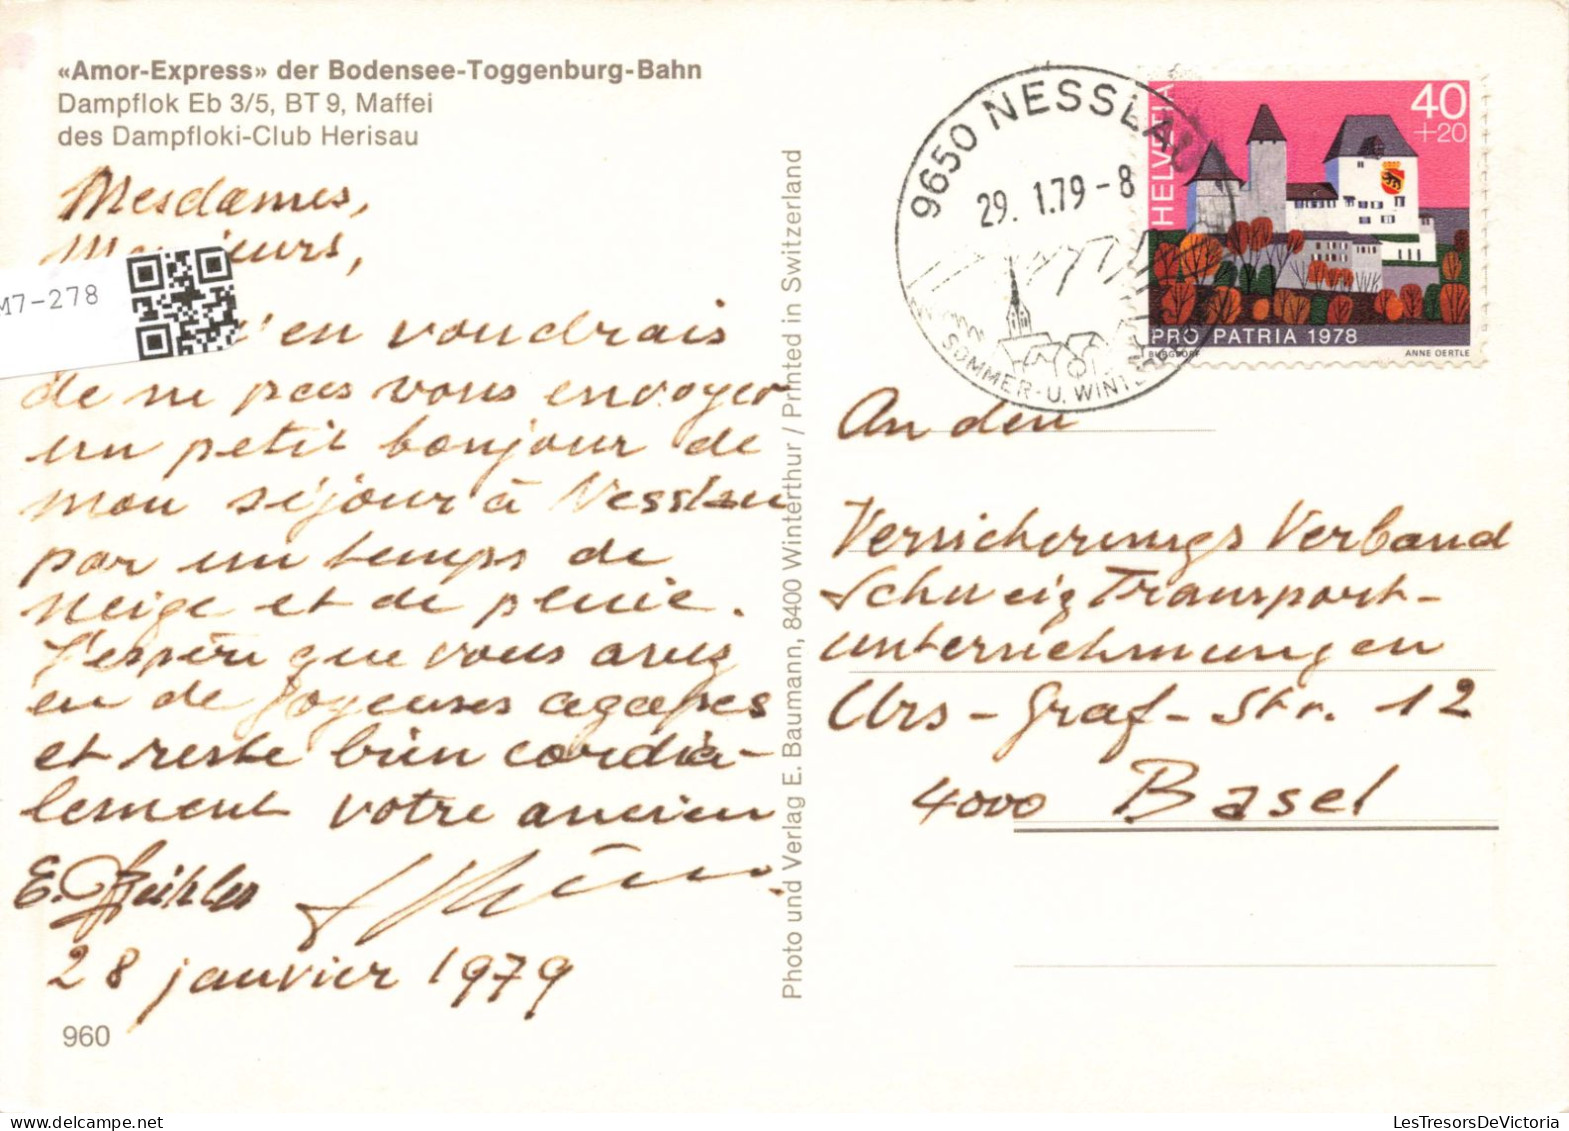 «Amor-Express» der Bodensee-Toggenburg-Bahn
Dampflok Eb 3/5, BT 9, Maffei
des Dampfloki-Club Herisau
Mesdames,
Messieurs,
M7-278
m'en voudrais
de ne pas vous envoyer
un petit bonjour de
mon séjour à Nesslau
par un temps de
neige et de pluie.
J'espère que vous avez
eu de joyeuses agapes
et reste bien cordia-
lement votre ancien
E.
28 janvier 1979
960
Photo und Verlag E. Baumann, 8400 Winterthur / Printed in Switzerland
9650 NESSLAU
29. 1.79-8
SOMMER- U. WINTER
HELVETIA
40
+20
PRO PATRIA 1978
BURGDORF
ANNE OERTLE
An den
Versicherungs Verband
Schweiz Transport-
unternehmungen
Urs-Graf-Str. 12
4000 Basel
LesTresorsDeVictoria.com